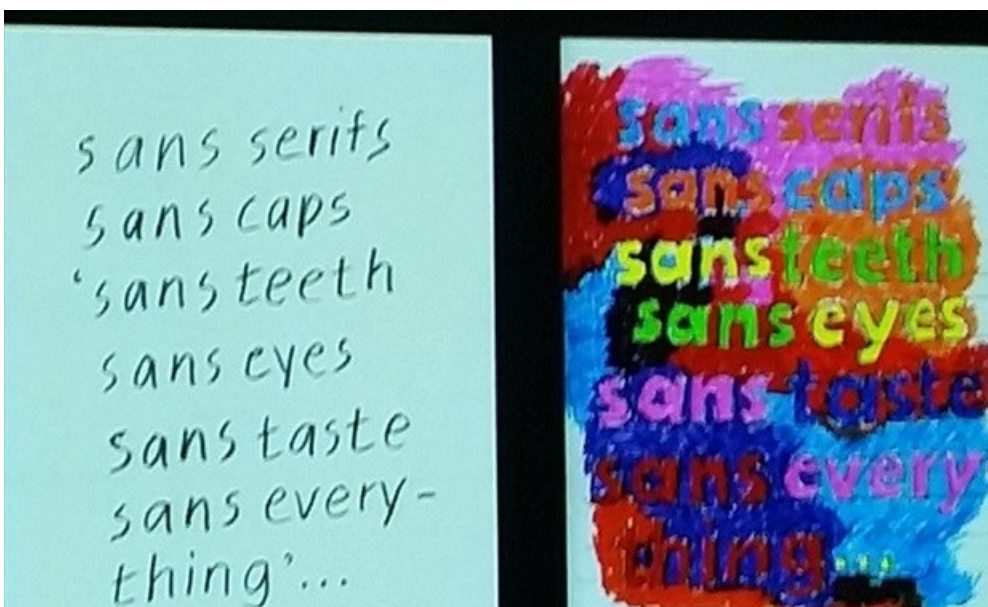 sans serifs
sans caps
'sans teeth
sans eyes
sans taste
sans every-
thing'...
sans serifs
sans caps
sans teeth
sans eyes
sans taste
sans every
thing...